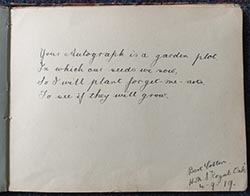 Your Autograph is a garden plot
In which our seeds we sow,
So I will plant forget-me-nots
To see if they will grow.
H.M.S. Royal Oak
4.9.19.